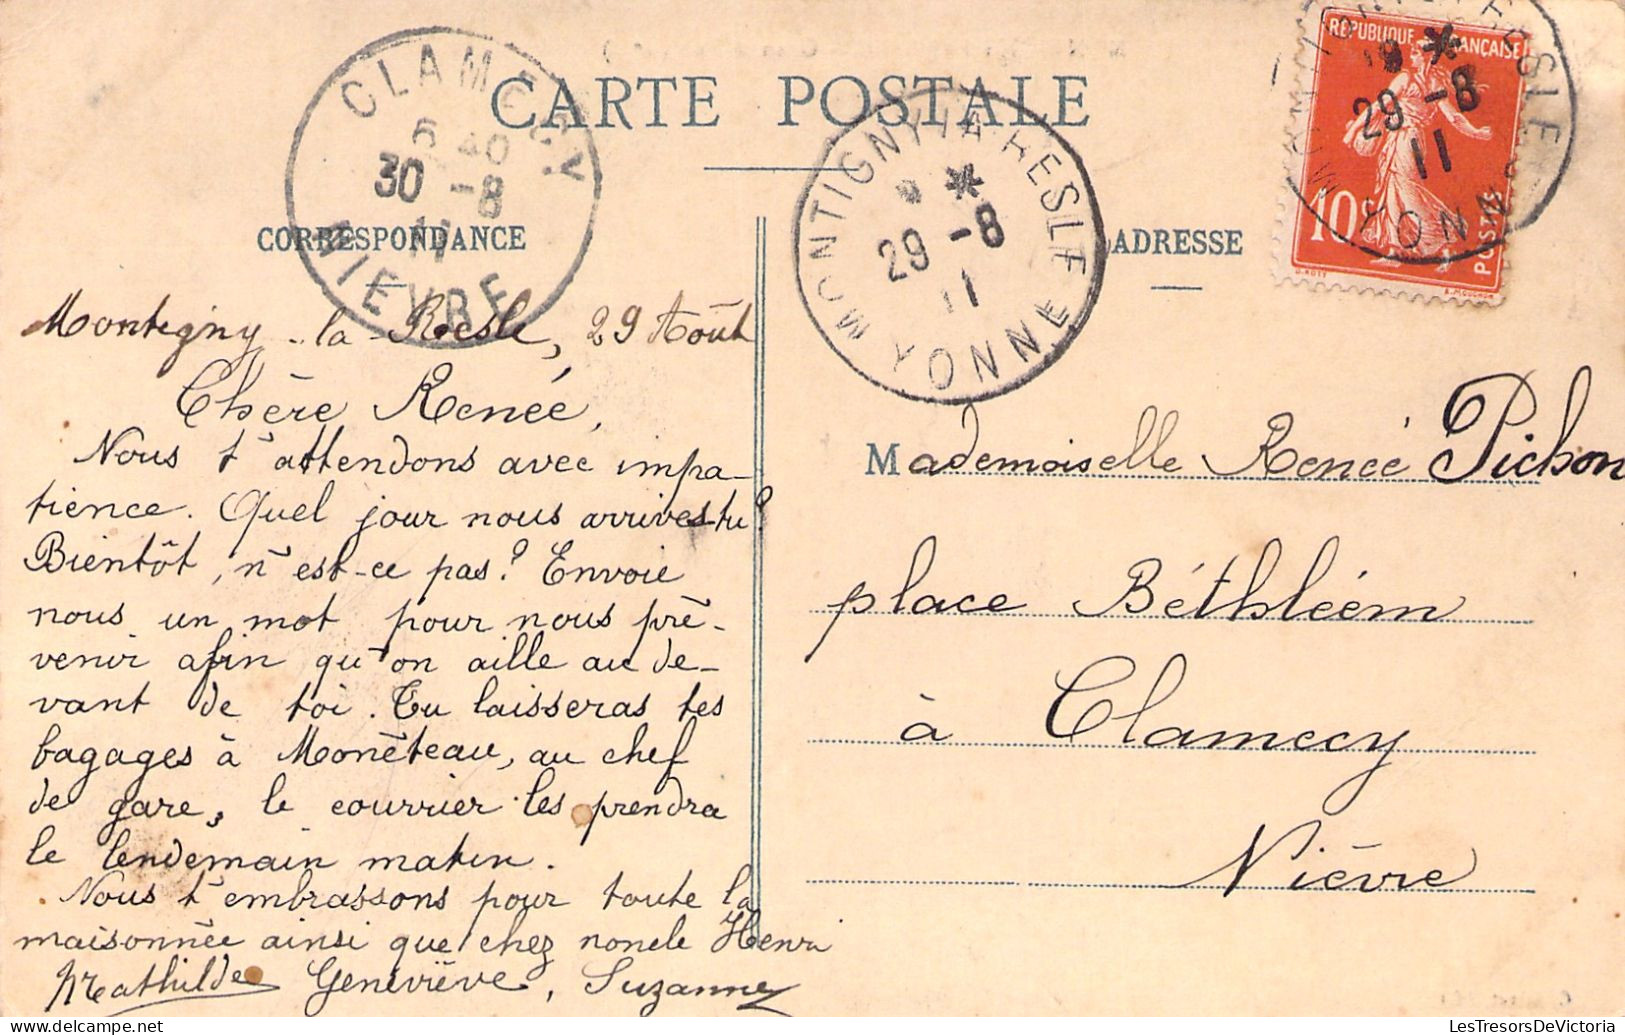 CARTE POSTALE
CORRESPONDANCE
ADRESSE
CLAMECY
6 40
30 -8
11
NIEVRE
MONTIGNY LA RESLE
*
29 -8
11
YONNE
RÉPUBLIQUE FRANÇAISE
10c
POSTES
*
29 -8
11
YONNE
Montigny-la-Resle, 29 Août
Chère Renée,
Nous t'attendons avec impa-
tience. Quel jour nous arrives-tu?
Bientôt, n'est-ce pas? Envoie
nous un mot pour nous pré-
venir afin qu'on aille au de-
vant de toi. Tu laisseras tes
bagages à Monéteau, au chef
de gare, le courrier les prendra
le lendemain matin.
Nous t'embrassons pour toute la
maisonnée ainsi que chez noncle Henri
Mathilde Geneviève, Suzanne
Mademoiselle Renée Pichon
place Béthléem
à Clamecy
Nièvre
LesTresorsDeVictoria